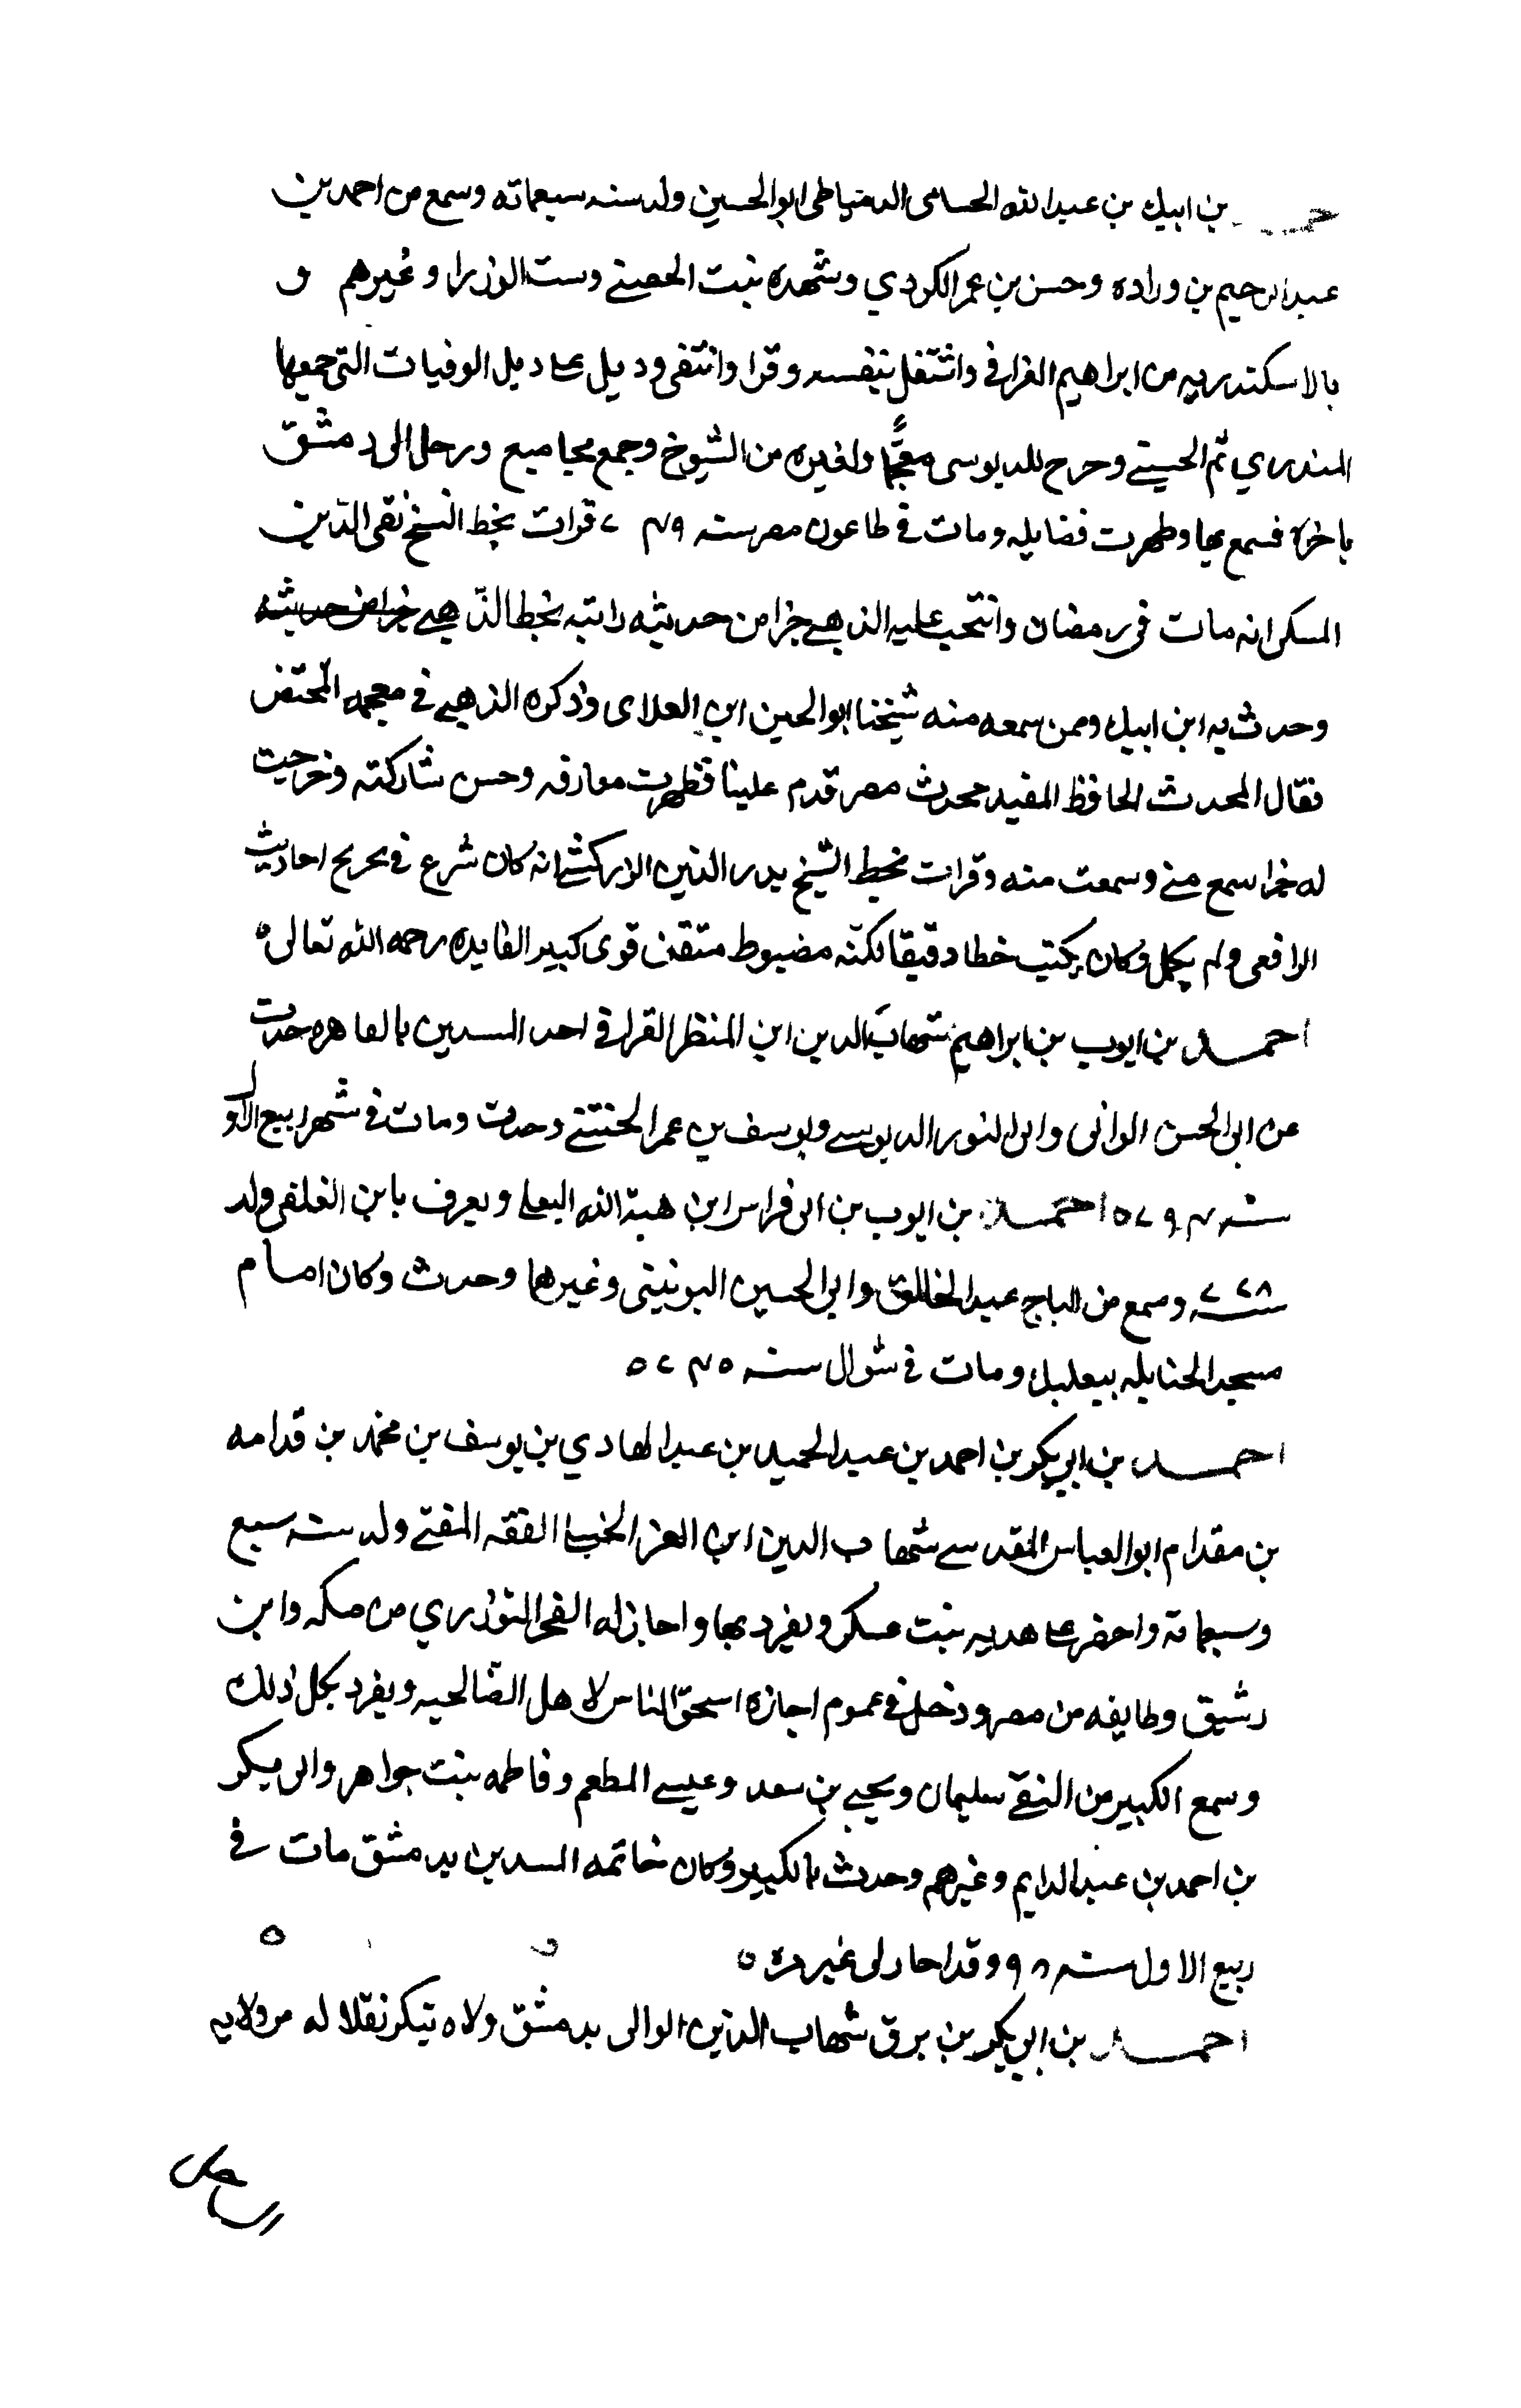 احمد بن ايبك بن عبد الله الحسامى الدمياطى ابو الحسين ولد سنه سبعماته وسمع من احمد بن
عبد الرحيم بن وراده وحسن بن عمر الكردي وشهده بنت الحصنى وست الوزرا وغيرهم و
بالاسكندريه من ابراهيم الغرافى واشتغل بنفسه وقرا وانتقى وديل على ديل الوفيات التى جمعها
المندري ثم الحسينى وخرج للدبوسى معجمًا ولغيره من الشيوخ وجمع مجاميع ورحل الى دمشق
باخرة فسمع بها وظهرت فضايله ومات فى طاعون مصر سنه ٧٤٩ قرات بخط الشيخ تقى الدين
السبكى انه مات فى رمضان وانتخب عليه الذهبى جزا من حديثه راتبه بخط الذهبى جزا من حديثه
وحدث به ابن ايبك وممن سمعه منه شيخنا ابو الحسن ابن العلاى وذكره الذهبى فى معجمه المختص
فقال المحدث الحافظ المفيد محدث مصر قدم علينا فظهرت معارفه وحسن مشاركته وخرجت
له جزا سمع منى وسمعت منه وقرات بخط الشيخ بدر الدين الزركشى انه كان شرع فى تخريج احاديث
الرافعى ولم يكمل وكان يكتب خطا دقيقا لكنّه مضبوط متقن قوى كبير الفايده رحمه الله تعالى ه
احمد بن ايوب بن ابراهيم شهاب الدين ابن المنظر القرافى احد المسندين بالقاهره حدث
عن ابى الحسن الوانى وابى النور الدبوسى ويوسف بن عمر الختنى وحدث ومات فى شهر ربيع الاول
سنه ٧٩٤ ه احمد بن ايوب بن ابى فراس ابن هبة الله البعلى ويعرف بابن الغلفى ولد
سنه ٦٧٨ وسمع من التاج عبد الخالق وابى الحسين اليونينى وغيرها وحدث وكان امام
مسجد الحنابله ببعلبك ومات فى شوال سنه ٧٤٥ ه
احمد بن ابى بكر بن احمد بن عبد الحميد بن عبد الهادي بن يوسف بن محمد بن قدامه
بن مقدام ابو العباس المقدسى شهاب الدين ابن العز الحنبلى الفقه المفتى ولد سنه سبع
وسبعماته واحضر على هديه بنت عسكر وتفرد بها واجاز له الفخر التوزري من مكه وابن
رشيق وطايفه من مصر ودخل فى عموم اجازة اسحق النحاس لاهل الصّالحيه وتفرد بكل ذلك
وسمع الكبير من التقى سليمان ويحيى بن سعد وعيسى المطعم وفاطمه بنت جواهر وابى بكر
بن احمد بن عبد الدايم وغيرهم وحدث بالكبير وكان خاتمه المسندين بدمشق مات فى
ربيع الاول سنه ٧٩٨ وقد اجاز لى غير مره ه
احمد بن ابى بكر بن برق شهاب الدين الوالى بدمشق ولاه تنكز نقلا له من ولايه